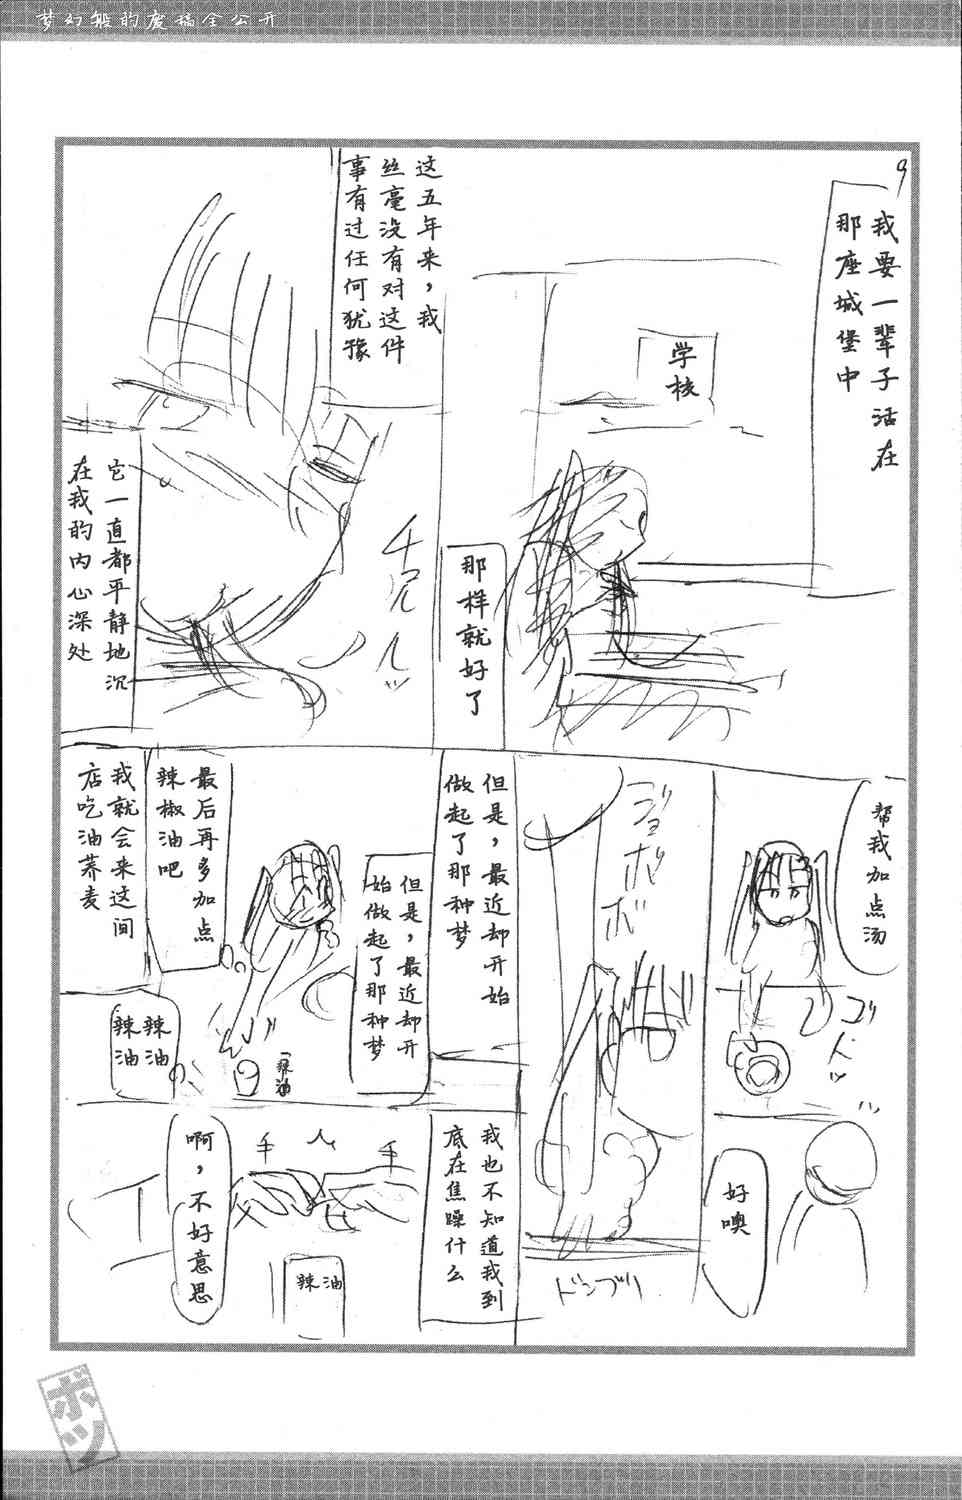 梦幻般的废稿全公开
9
我要一辈子活在
那座城堡中
学校
那样就好了
这五年来，我
丝毫没有对这件
事有过任何犹豫
它一直都平静地沉
在我的内心深处
帮我加点汤
好噢
ドンブリ
但是，最近却开始
做起了那种梦
但是，最近却开
始做起了那种梦
最后再多加点
辣椒油吧
我就会来这间
店吃油荞麦
辣油
辣油
辣油
我也不知道我到
底在焦躁什么
手
手
辣油
啊，不好意思
ボツ